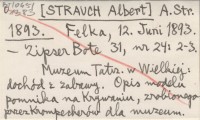 [STRAUCH Albert] A. Str.
1893.
Felka, 12. Juni 1893.
— Zipser Bote 31, nr 24: 2-3.
Muzeum Tatr. w Wielkiej
dochód z zabawy. Opis modelu
pomnika na Krywaniu, zrobionego
przez Krompecherów dla muzeum.